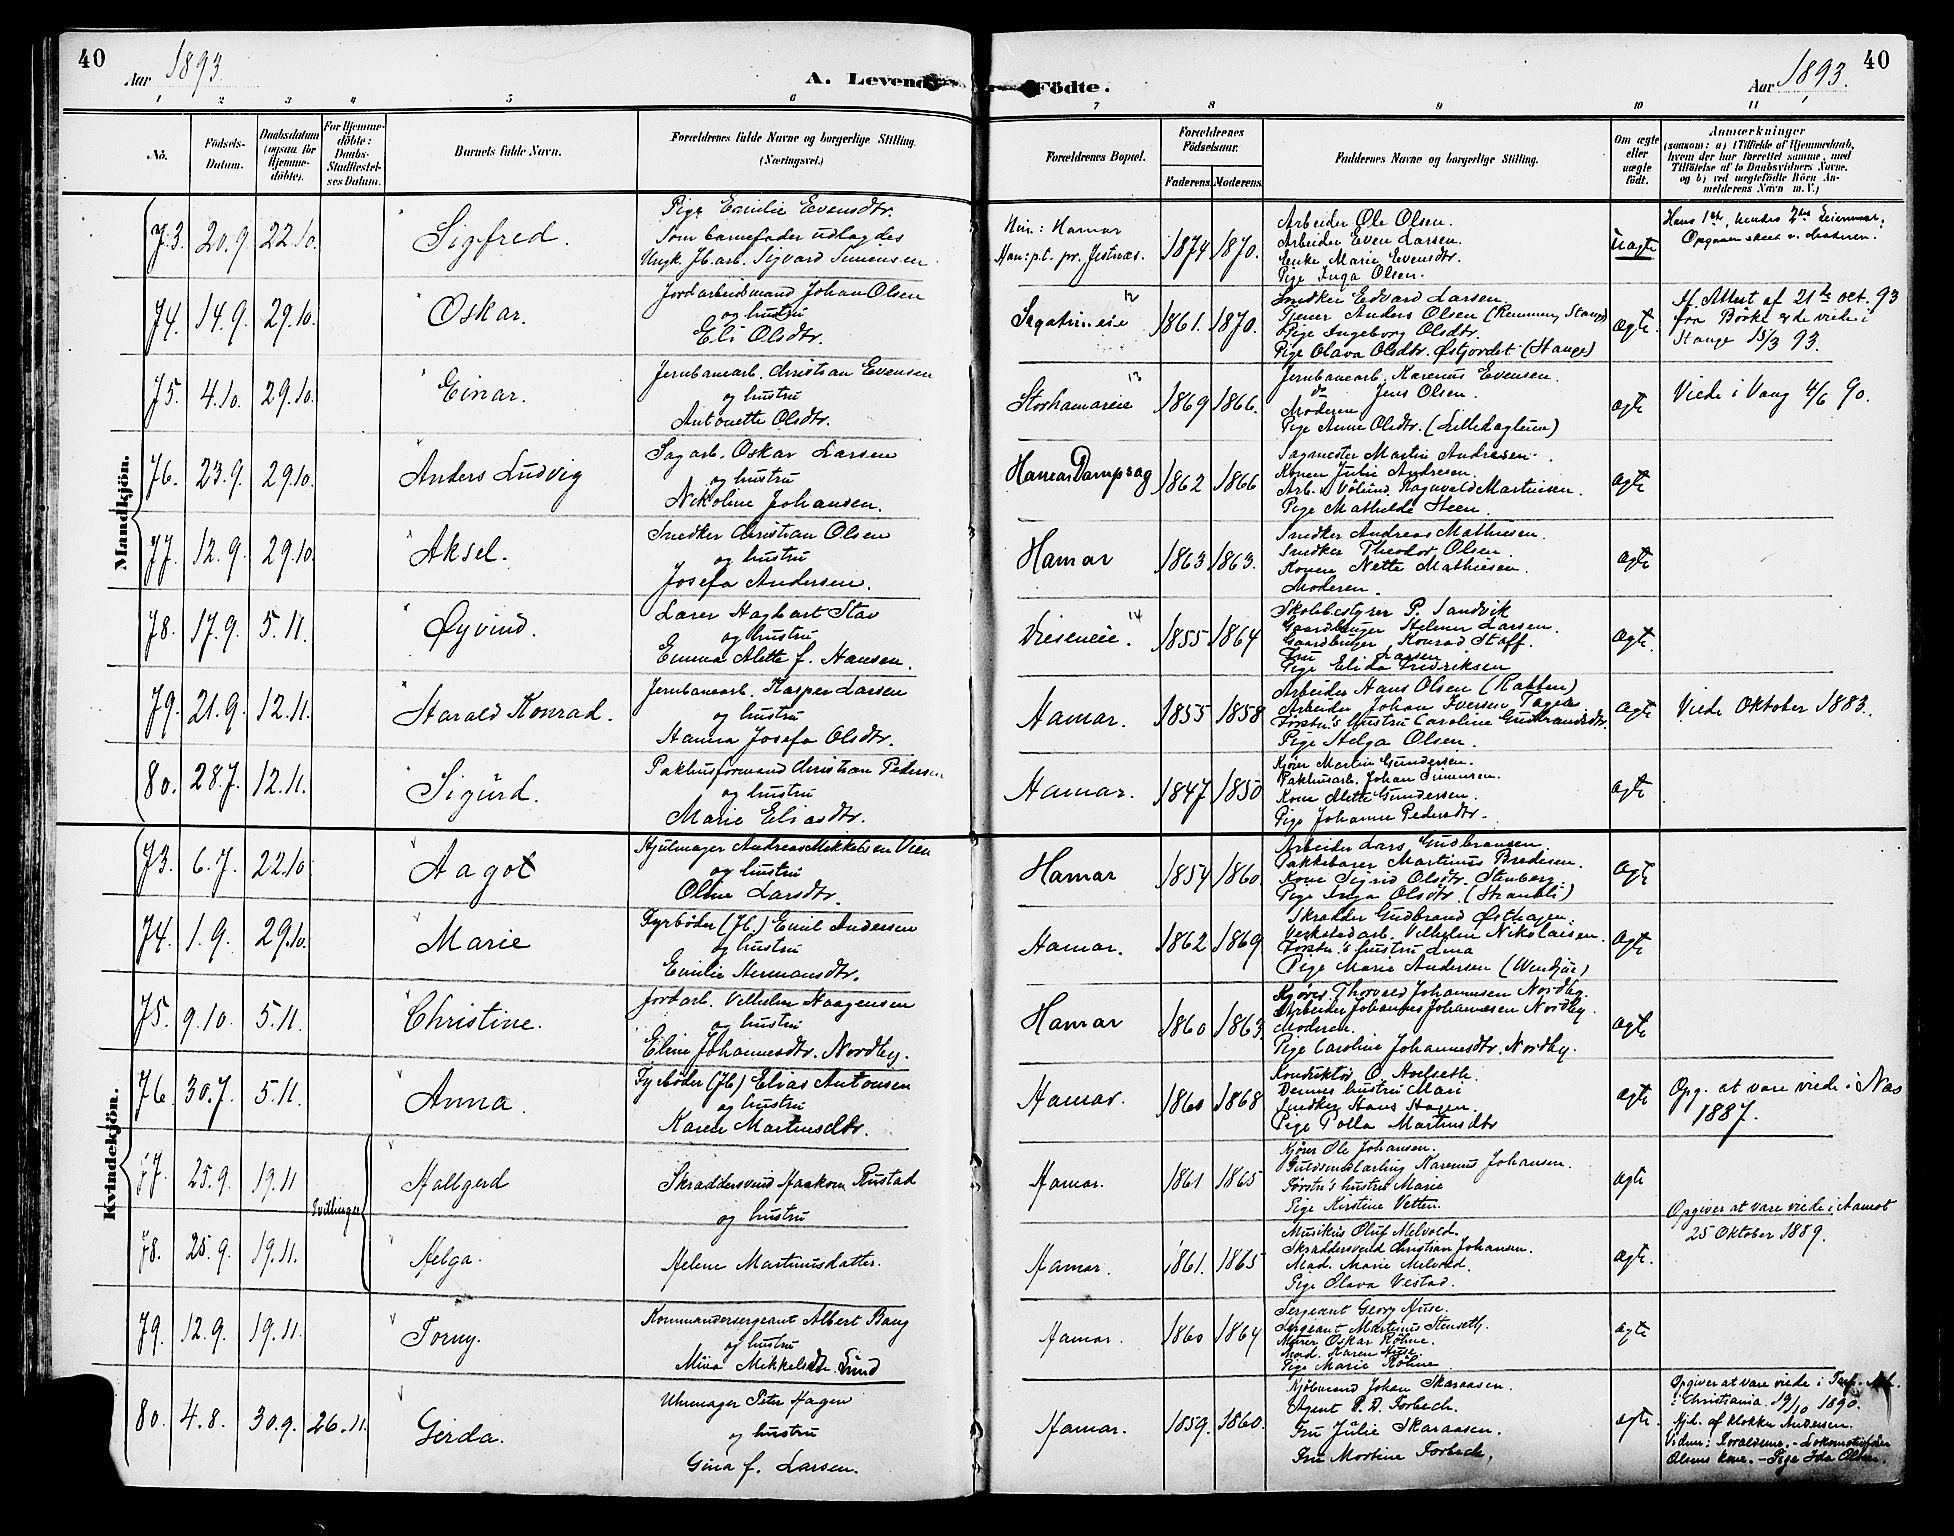 40
Aar 1893.
A. Levende
Födte.
Aar 1893.
40
1 2 3 4 5 6 7 8 9 10 11
No.
Födsels-
Datum.
Daabsdatum
(ogsaa for
Hjemme-
döbte).
For Hjemme-
döbte:
Daabs-
Stadfæstel-
ses Datum.
Barnets fulde Navn.
Forældrenes fulde Navne og borgerlige Stilling.
(Næringsvei.)
Forældrenes Bopæl.
Forældrenes
Födselsaar.
Faderens. Moderens.
Faddernes Navne og borgerlige Stilling.
Om ægte
eller
uægte
födt.
Anmærkninger
(saasom: a) i Tilfælde af Hjemmedaab,
hvem der har forrettet samme, med
Tilföielse af to Daabsvidners Navne.
og b) ved uægtefödte Börn An-
melderens Navn m. V.)
Mandkjön.
73. 20.9. 22.10. Sigfred.
Pige Emilie Evensdtr.
Som barnefader udlagdes
Ungk. Jb.arb. Sigvard Simensen
Hun: Hamar
Han: p.t. pr. Jestnæs.
1874 1870.
Arbeider Ole Olsen.
Arbeider Even Larsen.
Enke Marie Evensdtr.
Pige Inga Olsen.
uægte
Hans 1ste, hendes 2den Leiermaal.
Opgaven skeet v. Moderen.
74. 14.9. 29.10. Oskar.
Jordarbeidsmand Johan Olsen
og hustru
Eli Olsdtr.
12
Sagatuneie 1861. 1870.
Snedker Edvard Larsen.
Tjener Anders Olsen (Rummeng Stange)
Pige Ingeborg Olsdtr.
Pige Olava Olsdtr. Østjordet (Stange)
ægte.
Jf. Attest af 21de oct. 93
fra Börke ere de viede i
Stange 15/3 93.
75. 4.10. 29.10. Einar.
Jernbanearb. Christian Evensen
og hustru
Antonette Olsdtr.
13
Storhamareie 1869 1866.
Jernbanearb. Karenus Evensen.
do Jens Olsen.
Moderen
Pige Anne Olsdtr. (Lilledagluen)
ægte
Viede i Vang 4/6 90.
76. 23.9. 29.10. Anders Ludvig
Sagarb. Oskar Larsen
og hustru
Nikoline Johansen.
Hamar Dampsag 1862 1866
Sagmester Martin Andresen.
Konen Julie Andresen.
Arb. v. Vølund Ragnvald Martinsen.
Pige Mathilde Steen.
ægte
77. 12.9. 29.10. Aksel.
Snedker Christian Olsen
og hustru
Josefa Andersen.
Hamar 1863 1863.
Snedker Andreas Mathiesen.
Snedker Theodor Olsen.
Konen Nette Mathiesen.
Moderen.
ægte
78. 17.9. 5.11. Øyvind.
Lærer Hagbart Stav
og hustru
Emma Alette f. Hansen.
14
Vieseneie. 1855 1864
Skolebestyrer P. Sandvik
Gaardbruger Helmer Larsen.
Gaardbruger Konrad Staff.
Fru Larsen
Pige Elida Fredriksen
ægte.
79. 21.9. 12.11. Harald Konrad.
Jernbanearb. Kasper Larsen
og hustru
Hanna Josefa Olsdtr.
Hamar. 1855 1858
Arbeider Hans Olsen (Rabben)
Arbeider Johan Iversen
Førstn's Hustru Caroline Gudbrandsdtr.
Pige Helga Olsen.
ægte
Viede Oktober 1883.
80. 28.7. 12.11. Sigurd.
Pakhusformand Christian Pedersen
og hustru
Marie Eliasdtr.
Hamar. 1847 1850
Kjører Martin Gundersen.
Pakhusarb. Johan Simensen.
Kone Mette Gundersen.
Pige Johanne Pedersdtr.
ægte
Kvindekjön.
73. 6.7. 22.10 Aagot
Hjulmager Andreas Mikkelsen Vien
og hustru
Oline Larsdtr.
Hamar 1854 1860.
Arbeider Lars Gudbransen.
Pakkebærer Martinus Bredesen.
Kone Sigrid Olsdtr. Stenberg.
Pige Inga Olsdtr. (Strandli)
ægte
74. 1.9. 29.10. Marie
Fyrbøder (Jb.) Emil Andersen
og hustru
Emilie Hermansdtr.
Hamar. 1862 1869
Skrædder Gudbrand Østhagen.
Verkstedarb. Vilhelm Nikolaisen.
Førstn's hustru Lina
Pige Marie Andersen
ægte
75. 9.10. 5.11. Christine.
Jordarb. Vilhelm Haagensen
og hustru
Eline Johannesdtr. Nordby.
Hamar 1860 1863.
Kjører Thorvald Johannesen Nordby.
Arbeider Johannes Johannesen Nordby.
Moderen.
Pige Caroline Johannesdtr. Nordby.
ægte
76. 30.7. 5.11. Anna.
Fyrbøder (Jb) Elias Antonsen
og hustru
Karen Martinsdtr.
Hamar. 1860 1868
Konduktør O. Hoelseth.
Dennes hustru Mari
Snedker Hans Hagen.
Pige Polla Martinsdtr
ægte
Opg. at være viede i Næs
1887.
77. 25.9. 19.11 Hallgerd
Tvillinger
Skræddersvend Haakon Rustad
og hustru
Hamar. 1861 1865
Kjører Ole Johansen.
Guldsmedlærling Karenus Johansen.
Førstn's hustru Marie
Pige Kirstine Vetten.
ægte
Opgiver at være viede i Aamot
25 Oktober 1889.
78. 25.9. 19.11. Helga.
Helene Martinusdatter.
Hamar. 1861. 1865
Musikus Oluf Melvold.
Skræddersvend Christian Johansen.
Mad. Marie Melvold.
Pige Olava Vestad.
ægte.
79. 12.9. 19.11. Torny.
Kommandersergeant Albert Bang
og hustru
Mina Mikkelsdtr. Lund
Hamar. 1860 1864
Sergeant Georg Huse.
Sergeant Martinus Stenseth.
Murer Oskar Röhne.
Mad. Karen Huse.
Pige Marie Röhne.
ægte
80. 4.8. 30.9. 26.11. Gerda.
Uhrmager Peter Hagen
og hustru
Gina f. Larsen.
Hamar. 1859. 1860.
Kjøbmand Johan Skaraasen.
Agent P. D. Torbech.
Fru Julie Skaraasen
Fru Martine Torbech.
ægte.
Opgiver at være viede i
i Christiania. 19/10 1890.
Hjd. af klokker Andersen.
Vidner: Forældrene. - Lokomotivfører
Olsens kone. - Pige Ida Olsen.